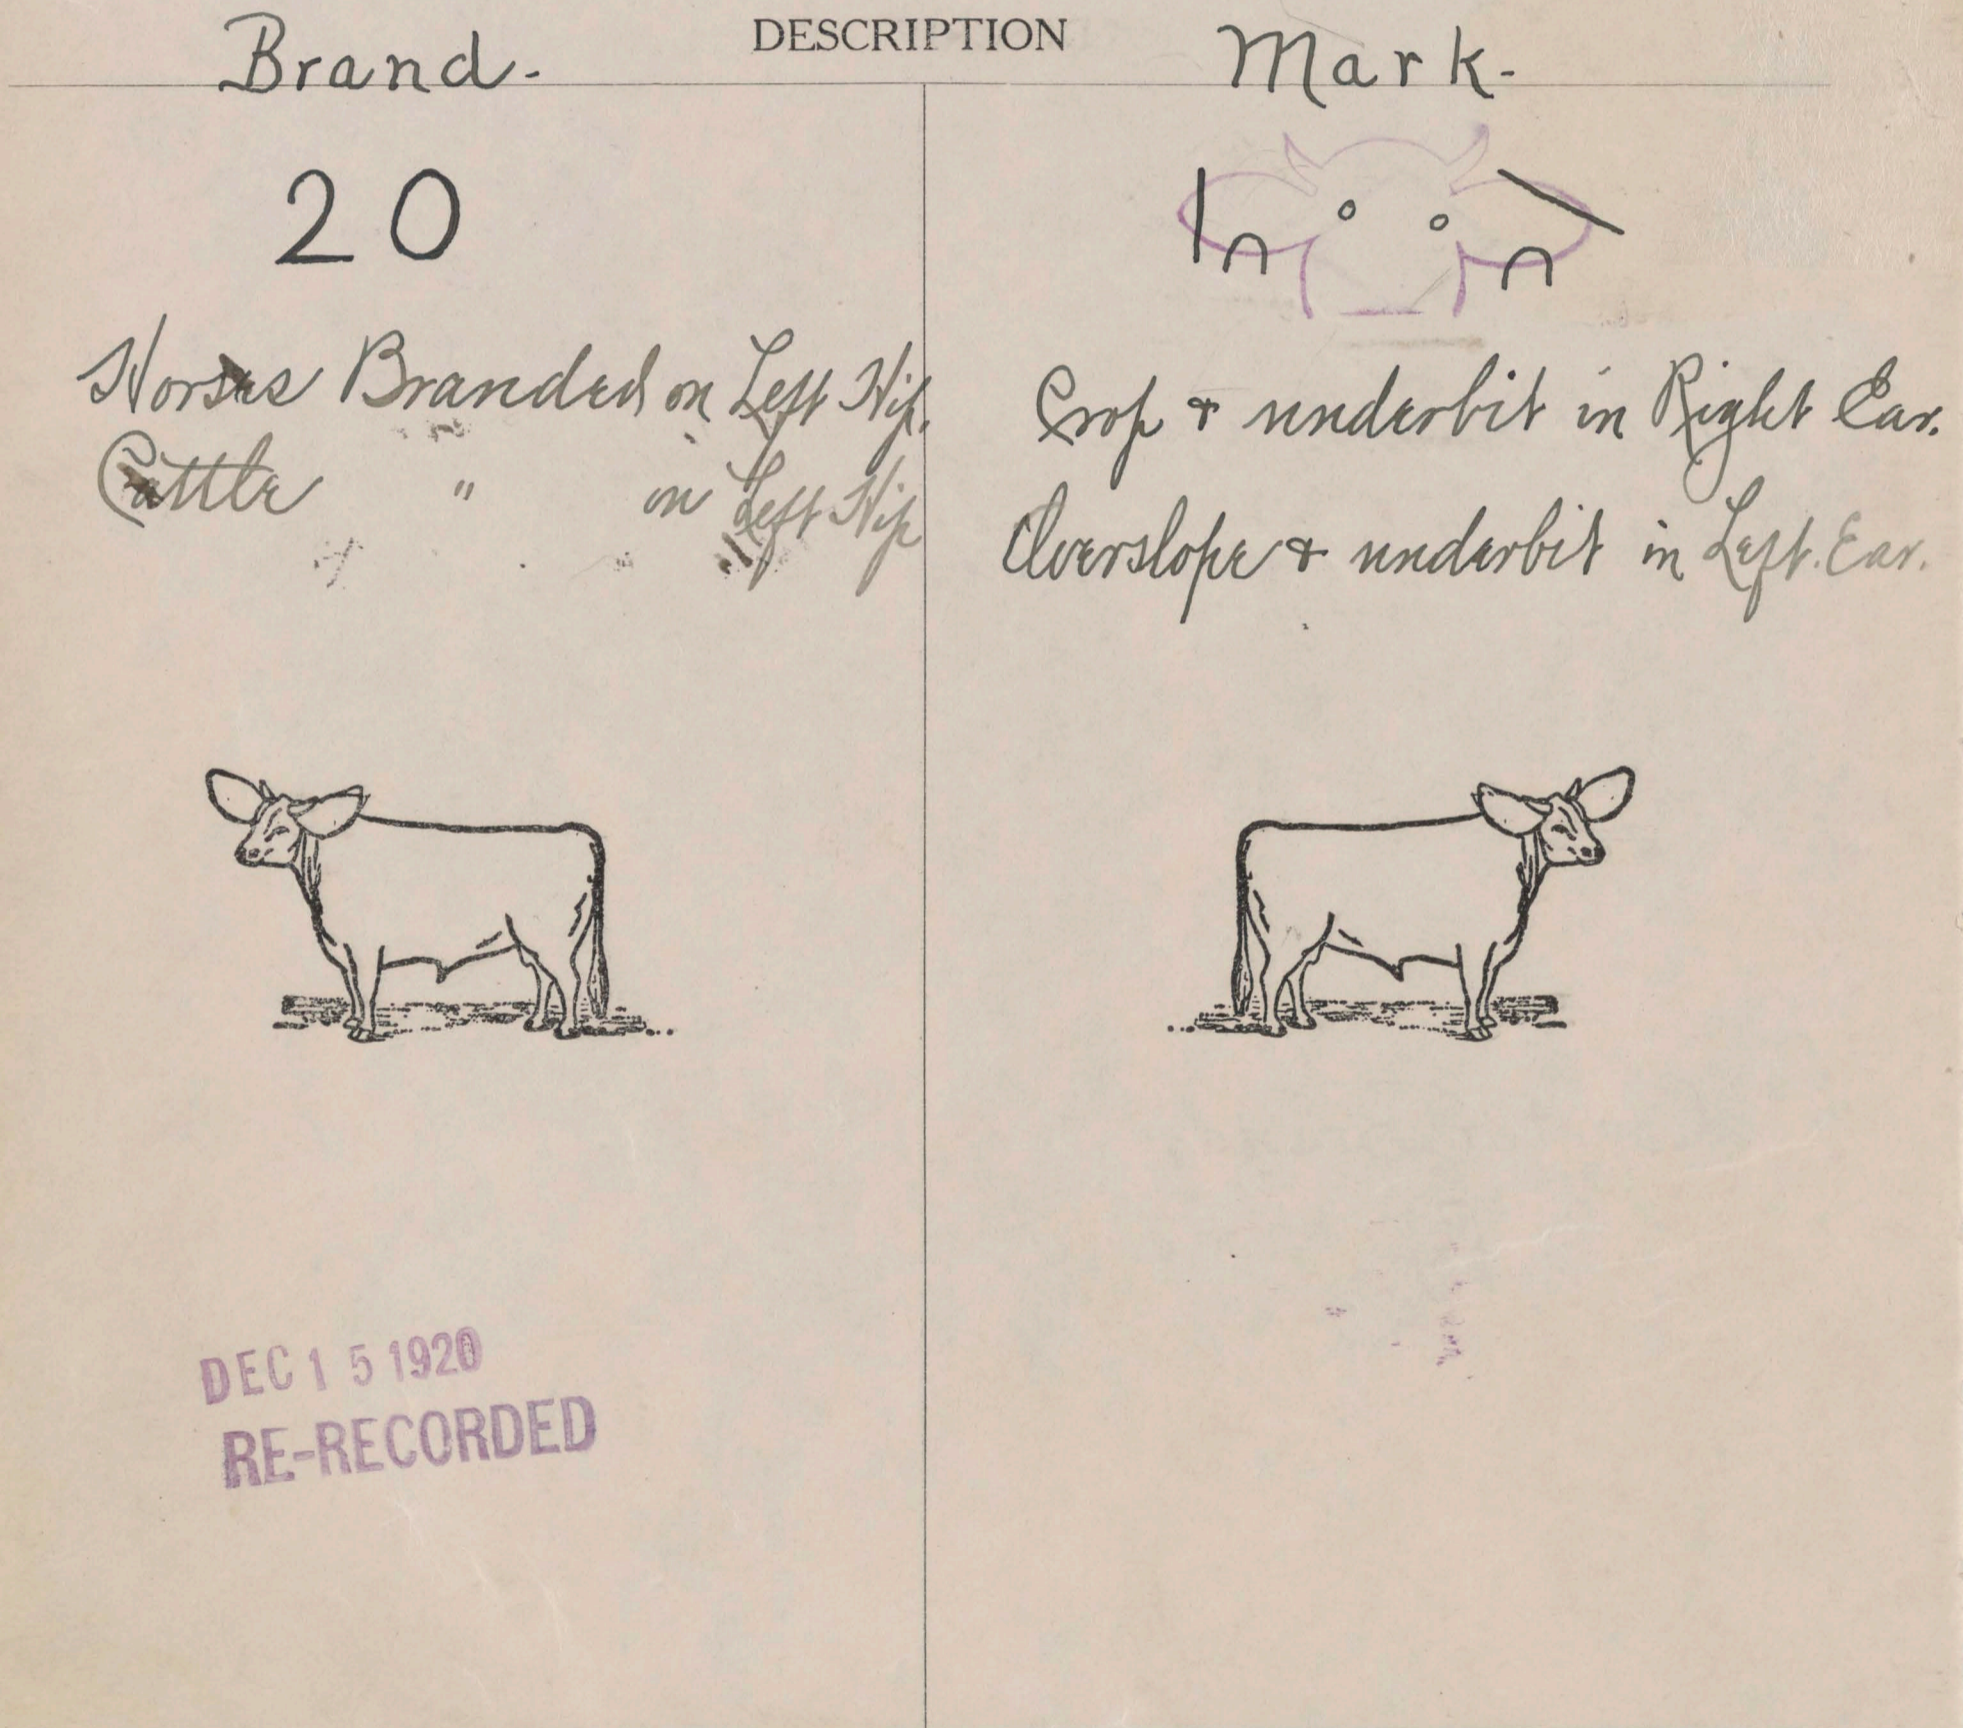 DESCRIPTION
Brand.
20
Horses Branded on Left Hip.
Cattle " on Left Hip
DEC 15 1920
RE-RECORDED
Mark.
Crop & underbit in Right Ear.
Overslope & underbit in Left. Ear.